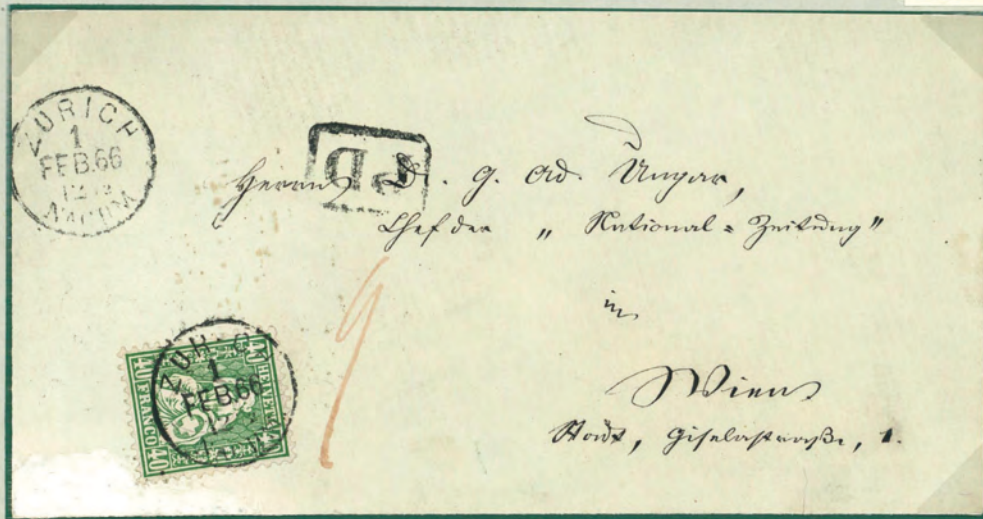 ZÜRICH
1
FEB.66
NACHM
PD
Herrn Dr. G. Ad. Ungar,
Chef der „ National = Zeitung"
in
Wien
Stadt, Giselastraße, 1.
9
ZÜRICH
1
FEB.66
40 HELVETIA 40
40 FRANCO 40